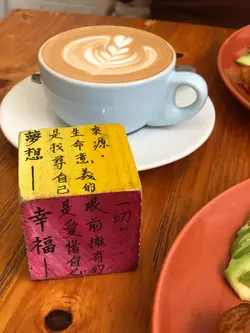 夢想—
是找尋自己
生命意義的
來源.
幸福—
是愛惜自己
眼前擁有的
一切.